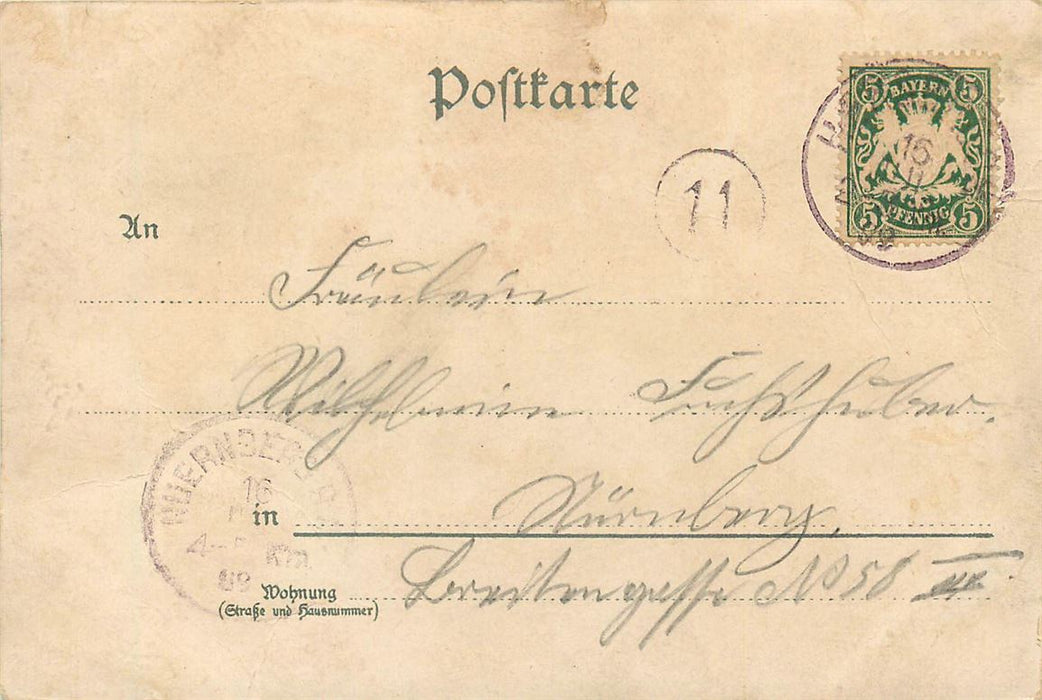 Postkarte
5 BAYERN 5
5 PFENNIG 5
16
11
An
Fräulein
Wilhelmine Fuchshuber.
NUERNBERG
16
in Nürnberg.
4-5 Nm
Wohnung Breitengasse No 58 III.
(Straße und Hausnummer)